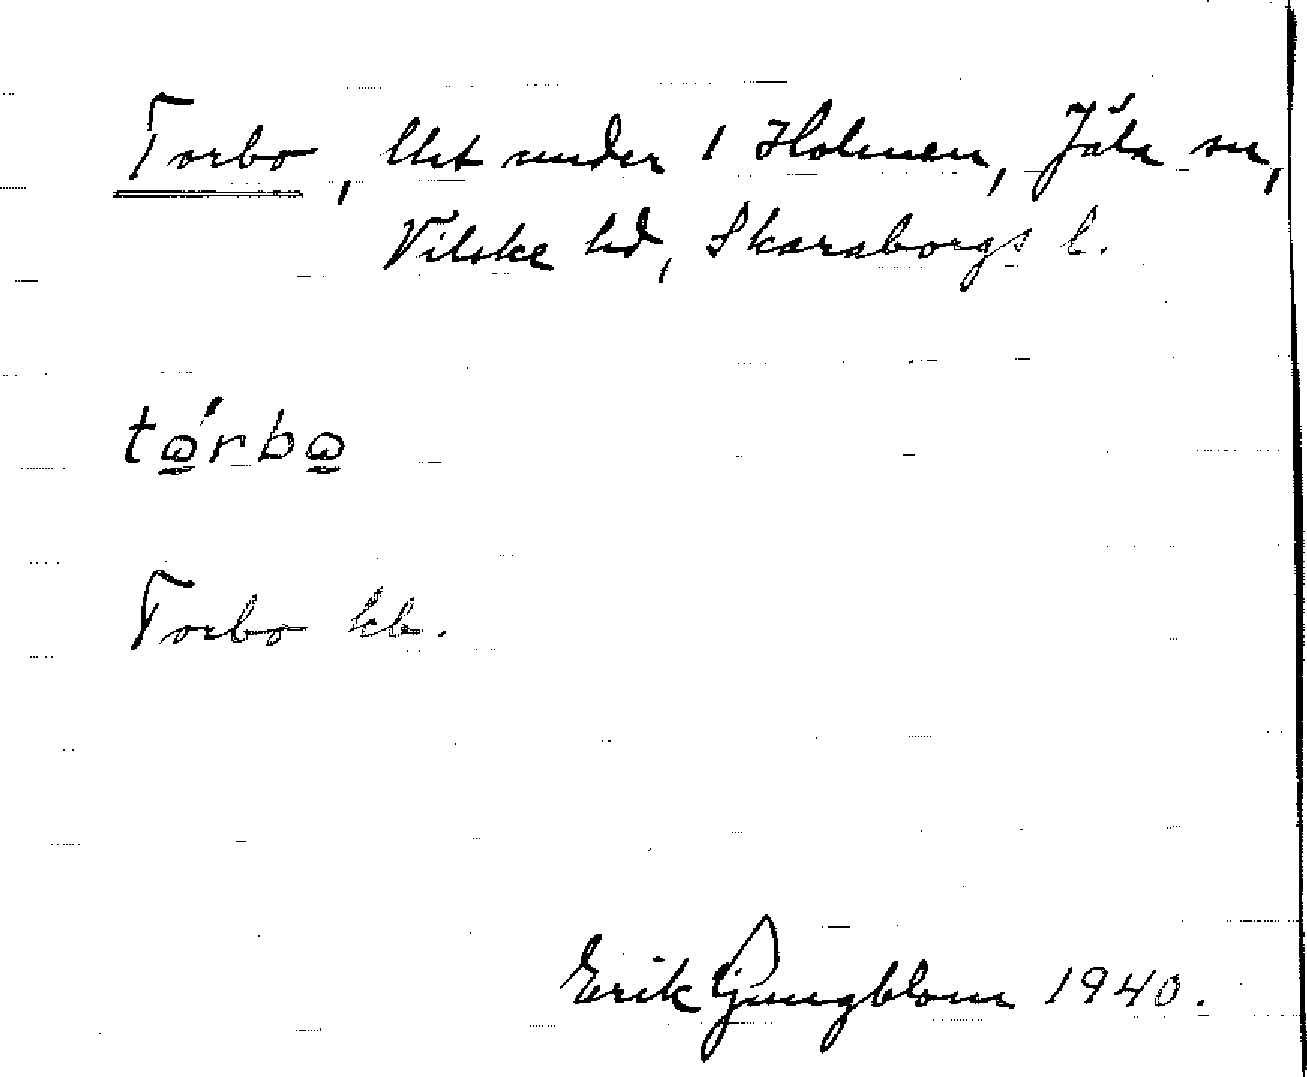 Torbo, lht under 1 Holmen, Jäla sn,
Vilske hd, Skaraborgs l.
tǫ́rbǫ
Torbo kb.
Erik Ljungblom 1940.